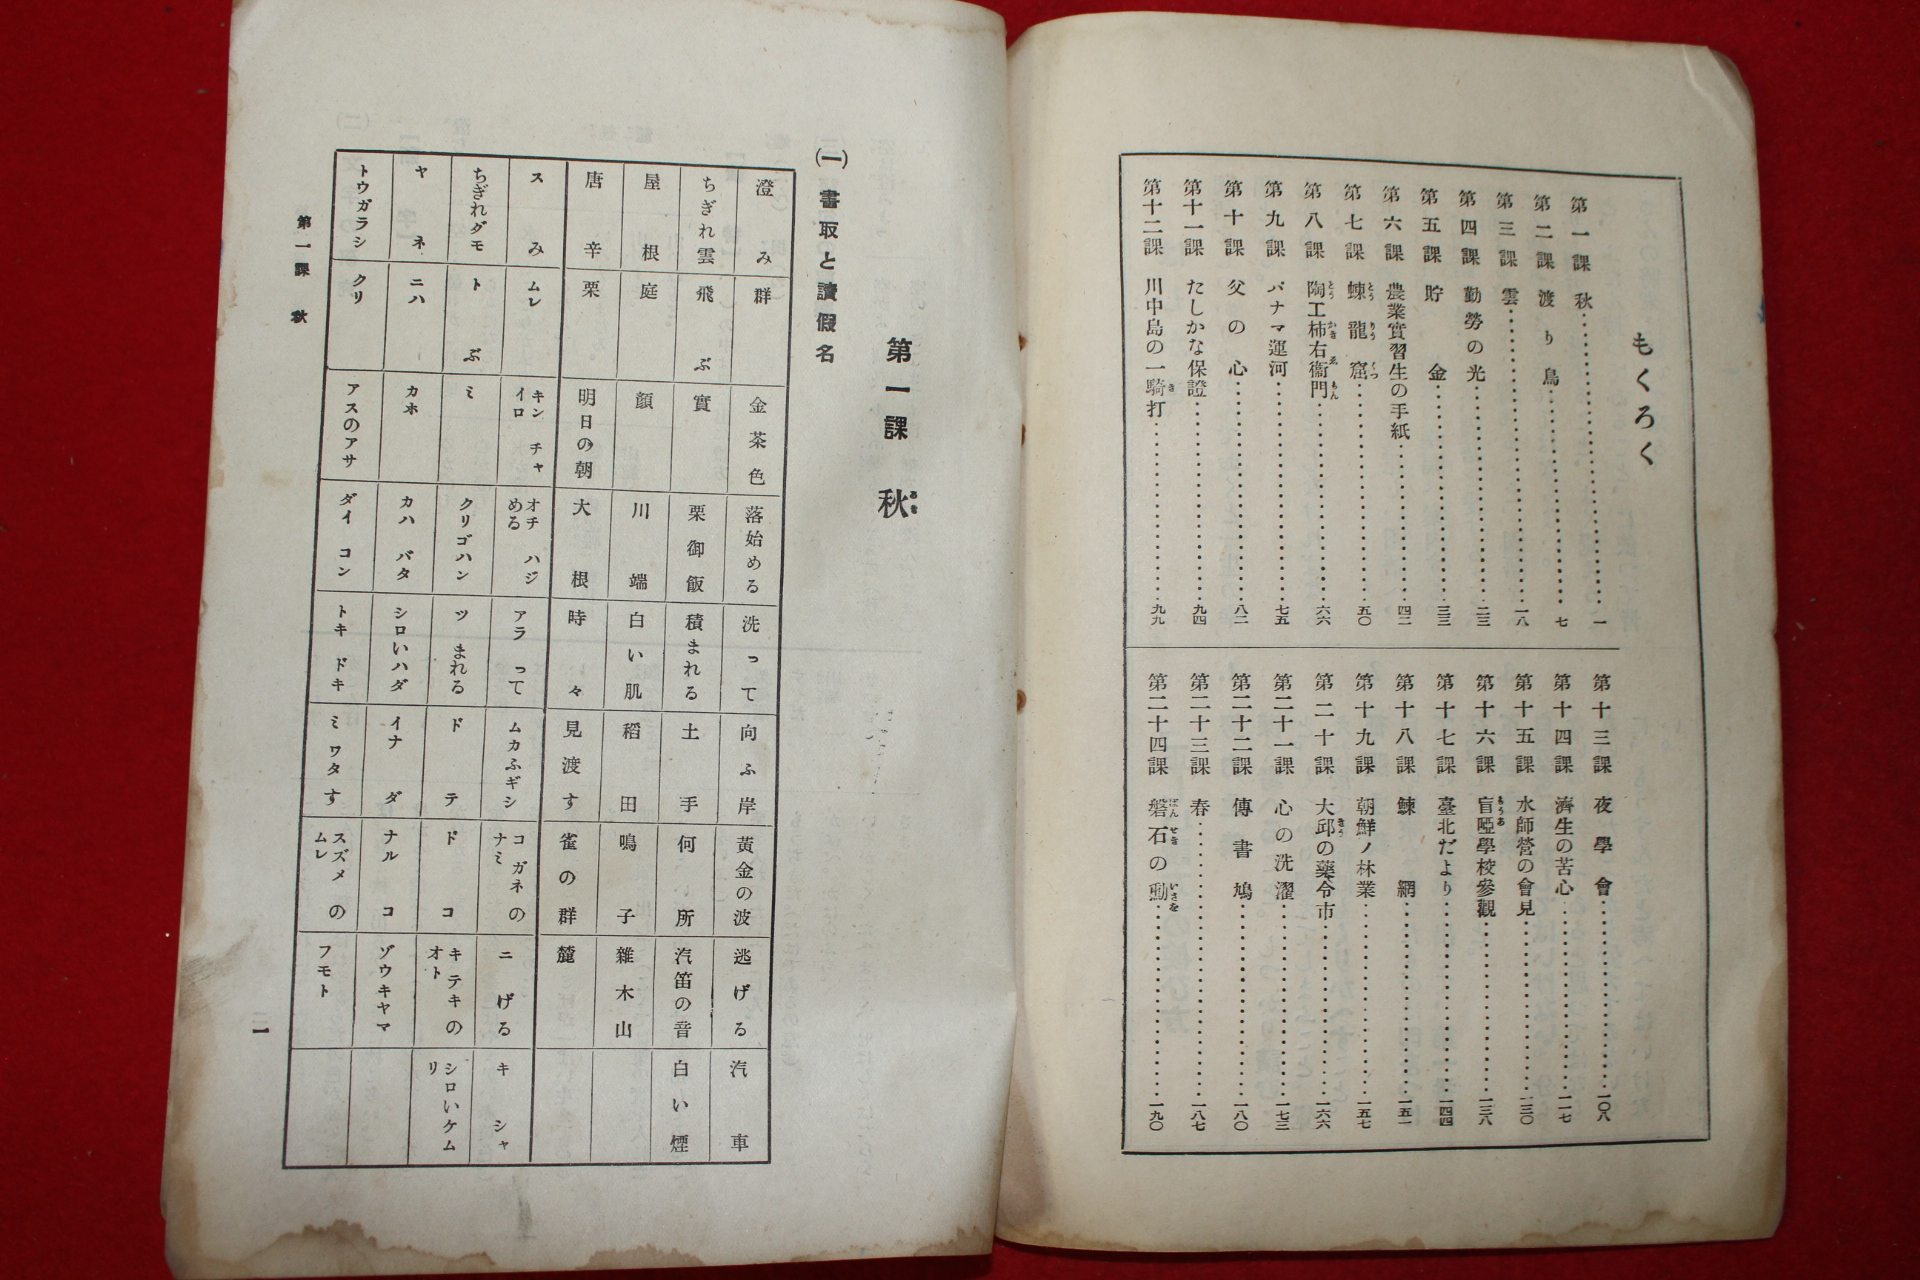 もくろく
第一課 秋……一
第二課 渡り鳥……七
第三課 雲……一八
第四課 勤勞の光……二三
第五課 貯金……三三
第六課 農業實習生の手紙……四二
第七課 蝀龍窟……五〇
第八課 陶工柿右衞門……六六
第九課 パナマ運河……七五
第十課 父の心……八二
第十一課 たしかな保證……九四
第十二課 川中島の一騎打……九九
第十三課 夜學會……一〇八
第十四課 濟生の苦心……一一七
第十五課 水師營の會見……一三〇
第十六課 盲啞學校參觀……一三八
第十七課 臺北だより……一四四
第十八課 鰊網……一五一
第十九課 朝鮮ノ林業……一五七
第二十課 大邱の藥令市……一六六
第二十一課 心の洗濯……一七三
第二十二課 傳書鳩……一八〇
第二十三課 春……一八七
第二十四課 磐石の勳……一九〇
第一課 秋
(一) 書取と讀假名
澄み 群 金茶色 落始める 洗って 向ふ岸 黃金の波 逃げる 汽車
ちぎれ雲 飛ぶ 實 栗御飯 積まれる 土手 何所 汽笛の音 白い煙
屋根 庭 顏 川端 白い肌 稻田 鳴子 雜木山
唐辛 栗 明日の朝 大根 時々 見渡す 雀の群 麓
スみ ムレ キンチャイロ オチハジめる アラって ムカふギシ コガネのナミ ニげる キシャ
ちぎれグモ トぶ ミ クリゴハン ツまれる ドテ ドコ キテキのオト シロいケムリ
ヤネ ニハ カホ カハバタ シロいハダ イナダ ナルコ ゾウキヤマ
トウガラシ クリ アスのアサ ダイコン トキドキ ミワタす スズメのムレ フモト
第一課 秋
一